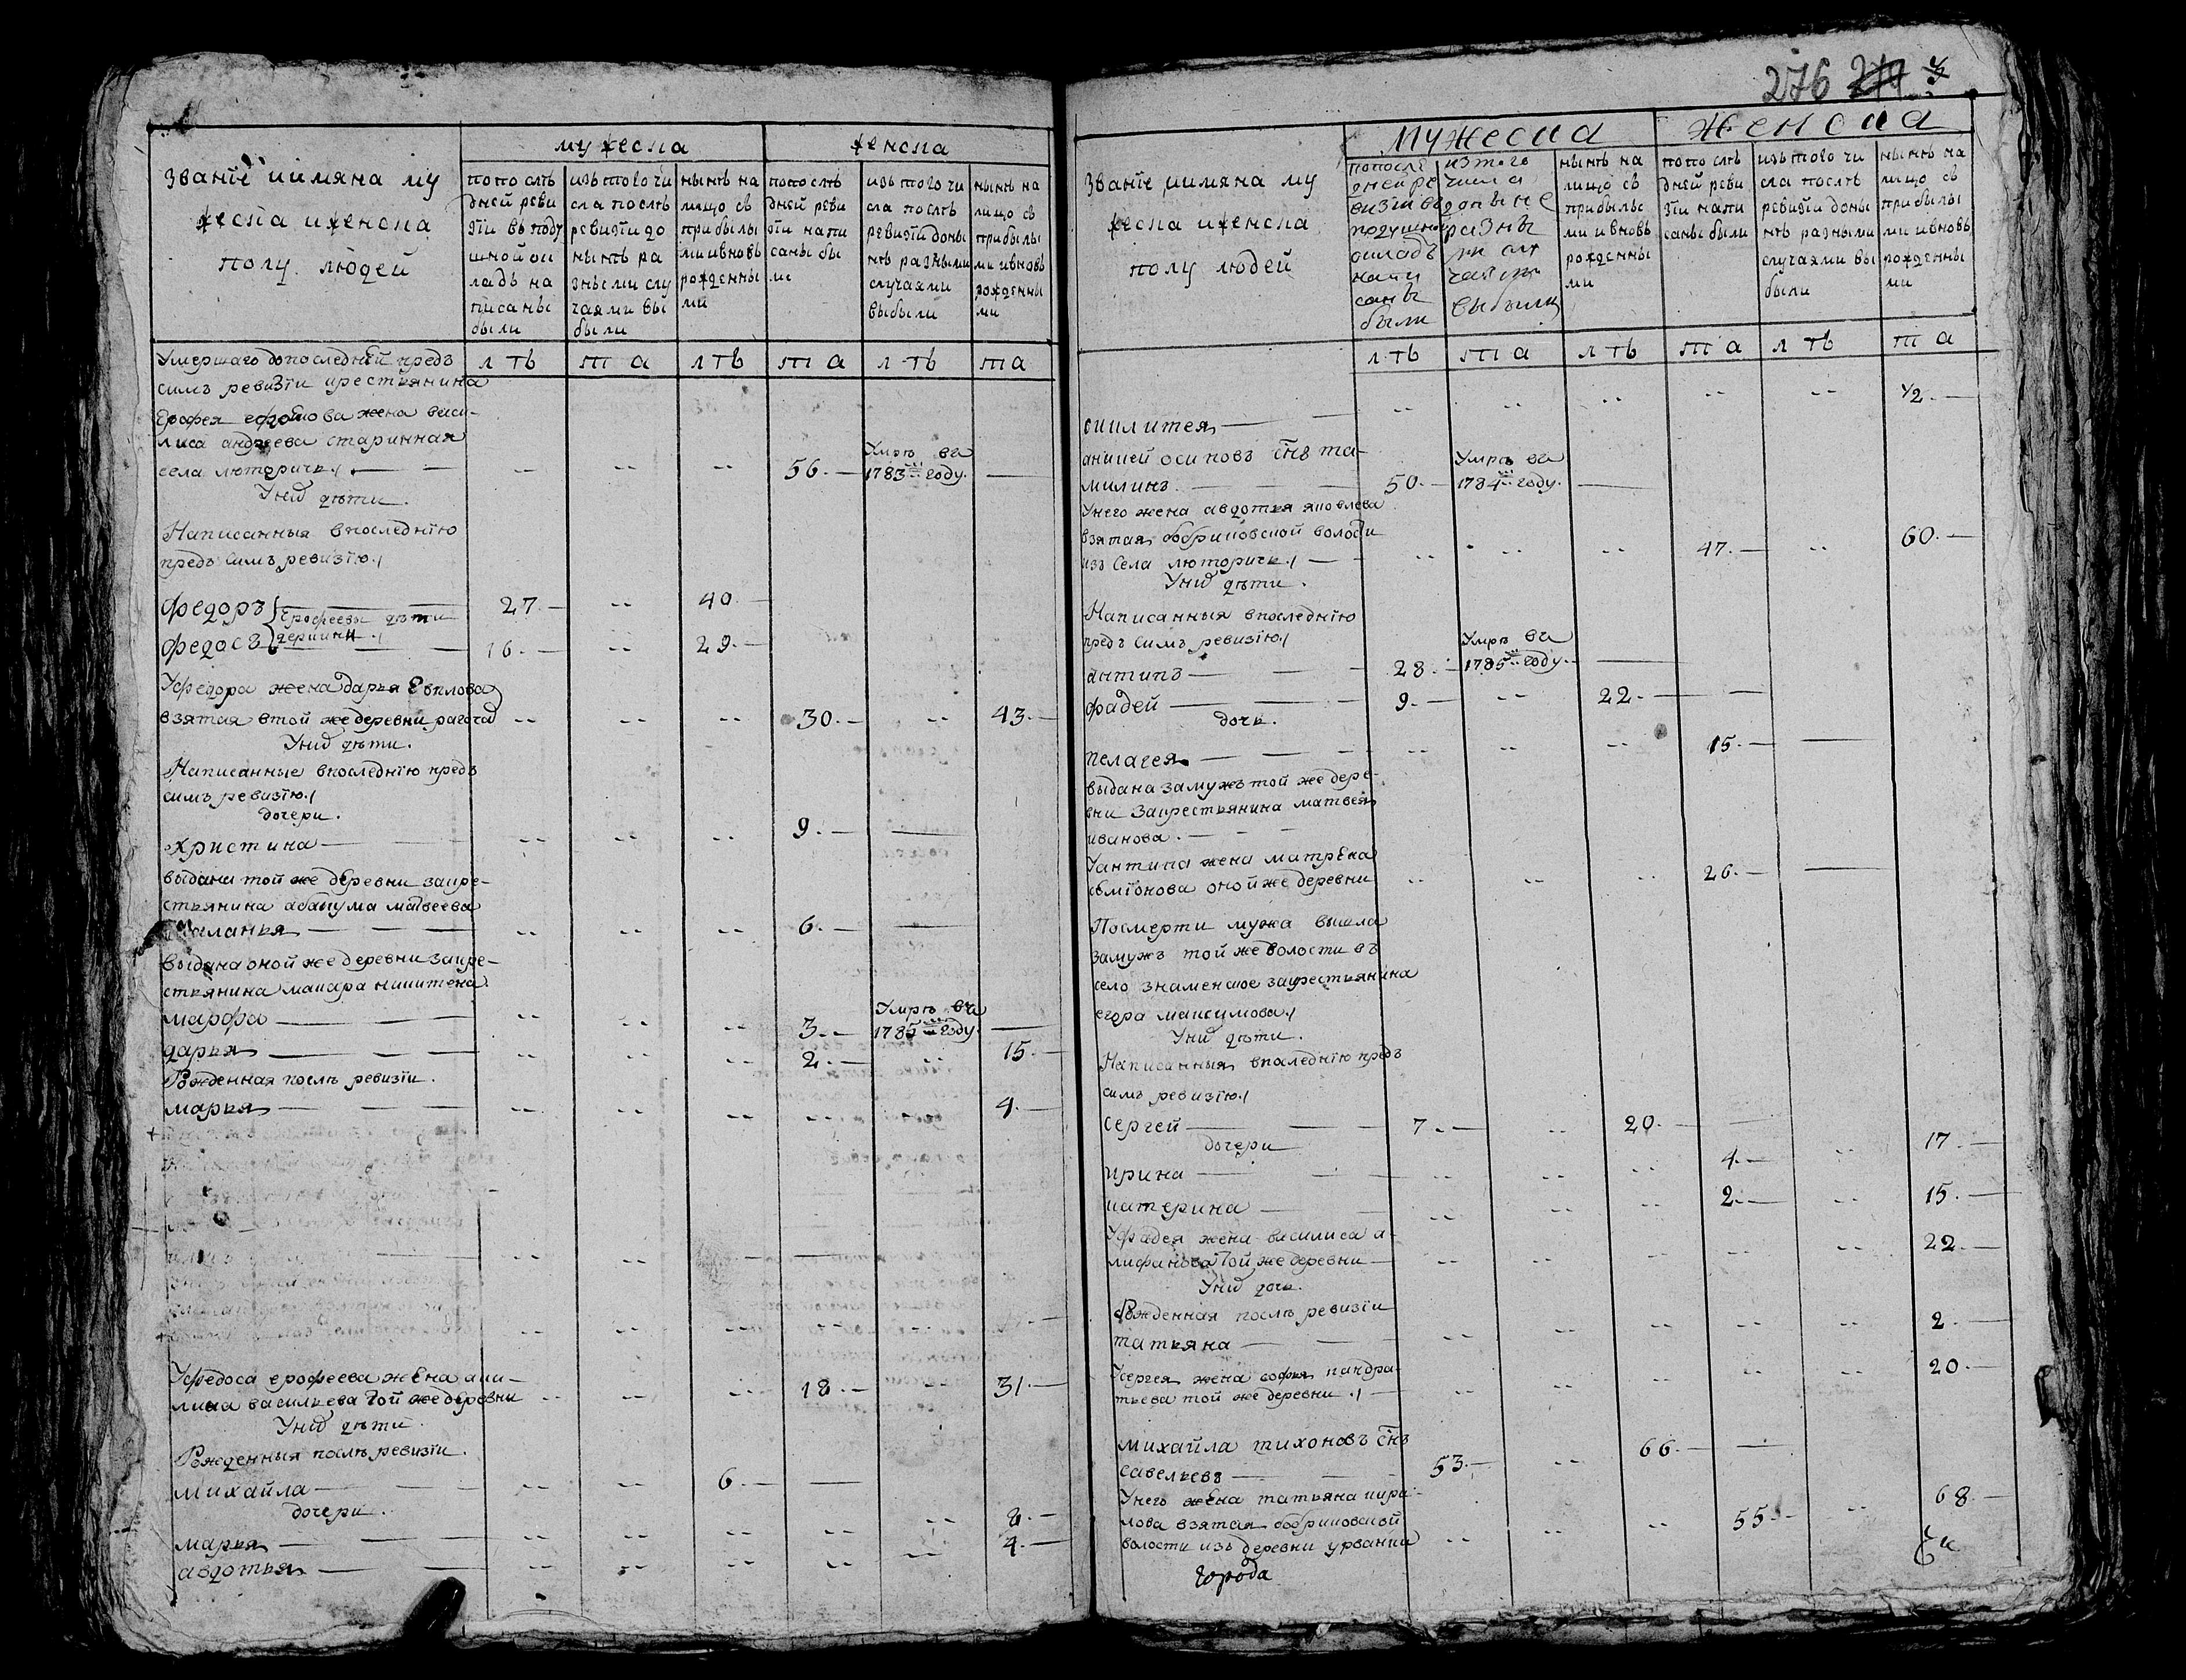 мужеска
женска
Званїе иимяна му
жеска иженска
полу людей
попослѣ
дней реви
зїи вподу
шной ок
ладъ на
писаны
были
изътого чи
сла послѣ
ревизїи до
нынѣ ра
зными слу
чаями вы
были
нынѣ на
лицо съ
прибылы
ми ивновь
рожденны
ми
попослѣ
дней реви
зїи напи
саны бы
ли
изътого чи
сла послѣ
ревизїи доны
нѣ разными
случаями
выбыли
нынѣ на
лицо съ
прибылы
ми ивновь
рожденны
ми
лѣ та лѣ та лѣ та
Умершаго допоследнѣй предъ
симъ ревизїи крестьянина
Ерофея жена васи-
лиса андреева старинная
села люторичь -- -- -- 56. Умре въ 1783м году.
Унихъ дѣти.
Написанныя впоследнїю
предъ симъ ревизїю
федоръ 27. -- 40.
Ерофеевы дѣти
федосъ 16. -- 29.
Уфедора жена дарья Евплова
взятая втой же деревни -- -- -- 30. -- 43.
Унихъ дѣти.
Написанные впоследнїю предъ
симъ ревизїю
дочери.
христина -- -- -- 9.
выдана той же деревни закре-
стьянина абакума матвеева
маланья -- -- -- 6.
выдана оной же деревни закре-
стьянина макара никитена
марфа -- -- -- 3. Умре въ 1785м году.
дарья -- -- -- 2. -- 15.
Рожденная послѣ ревизїи.
марья -- -- -- -- -- 4.
Уфедоса ерофеева жена аку-
лина васильева той же деревни -- -- -- 18. -- 31.
Унихъ дѣти.
Рожденныя послѣ ревизїи.
михайла -- -- 6.
дочери.
марья -- -- -- -- -- 8.
авдотья -- -- -- -- -- 4.
276
мужеска
женска
Званїе иимяна му
жеска иженска
полу людей
попослѣ
дней ре
визїи въ
подушной
окладъ
напи
саны
были
изтого
числа
доныне
разны
ми слу
чаями
выбыли
нынѣ на
лицо съ
прибылы
ми ивновь
рожденны
ми
попослѣ
дней реви
зїи напи
саны были
изътого чи
сла послѣ
ревизїи доны
нѣ разными
случаями вы
были
нынѣ на
лицо съ
прибылы
ми ивновь
рожденны
ми
лѣ та лѣ та лѣ та
-- -- -- -- -- 1/2.
аникей осиповъ снъ та-
милинъ 50. Умре въ 1784м году.
Унего жена авдотья яковлева
взятая бобриковской волости
изъ села люторичь -- -- -- 47. -- 60.
Унихъ дѣти.
Написанныя впоследнїю
предъ симъ ревизїю
антипъ 28. Умре въ 1785м году.
фадей 9. -- 22.
дочь.
пелагея -- -- -- 15.
выдана замужъ той же дере-
вни закрестьянина матвея
иванова.
Уантипа жена матрена
семїонова оной же деревни -- -- -- 26.
Посмерти мужа вышла
замужъ той же волости въ
село знаменское закрестьянина
егора максимова
Унихъ дѣти.
Написанныя впоследнїю предъ
симъ ревизїю
сергей 7. -- 20.
дочери
ирина -- -- -- 4. -- 17.
катерина -- -- -- 2. -- 15.
Уфадея жена василиса а-
лифанова той же деревни -- -- -- -- -- 22.
Унихъ дочь.
Рожденная послѣ ревизїи
татьяна -- -- -- -- -- 2.
Усергея жена софья пандра-
тьева той же деревни -- -- -- -- -- 20.
михайла тихоновъ снъ
савельевъ 53. -- 66.
Унего жена татьяна кира-
лова взятая бобриковской
волости изъ деревни урванки -- -- -- 55. -- 68.
города